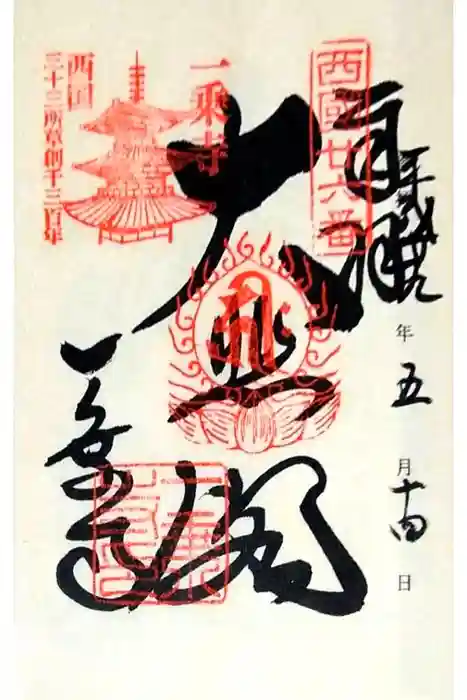 西國廿六番
奉拝
平成
年五月十四日
大悲閣
一乗寺
一乗寺
西国
三十三所草創千三百年